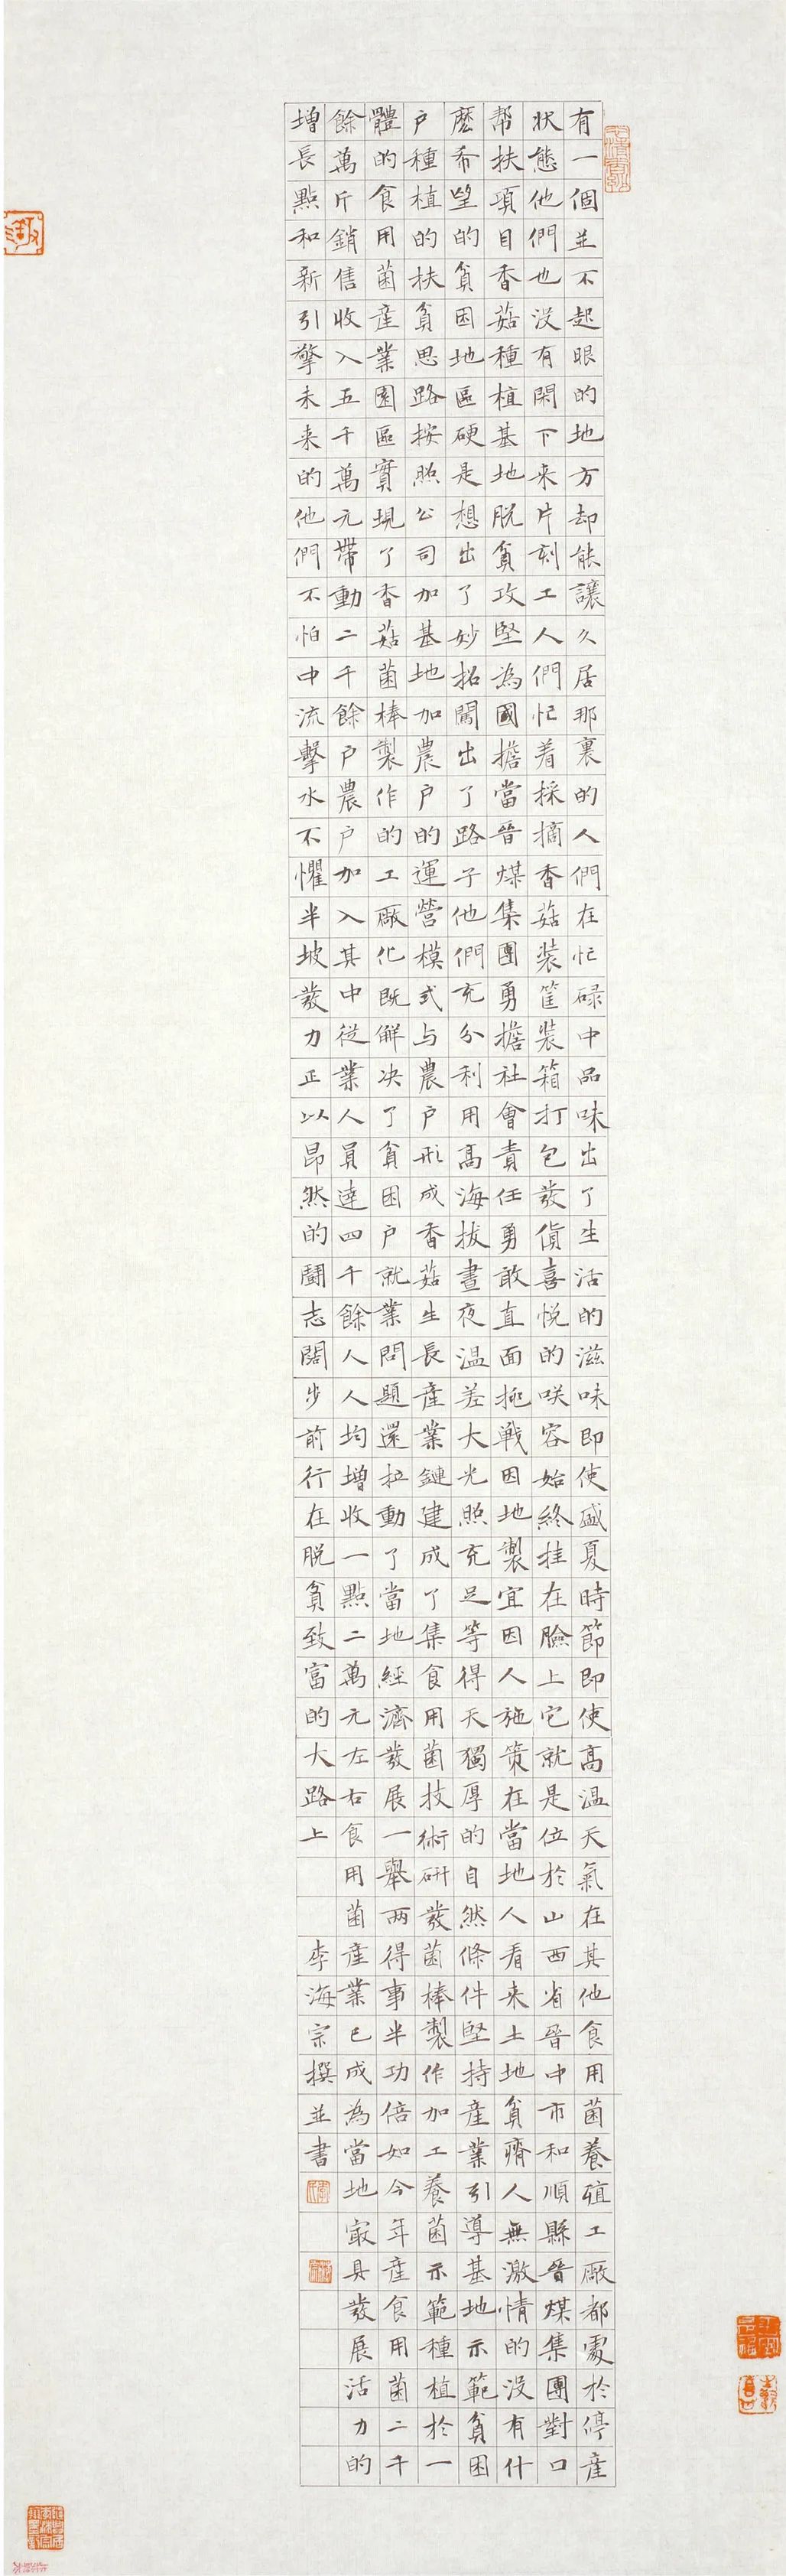 有一個並不起眼的地方却能讓久居那裏的人們在忙碌中品味出了生活的滋味即使盛夏時節即使高温天氣在其他食用菌養殖工廠都處於停産
状態他們也没有閑下来片刻工人們忙着採摘香菇装筐装箱打包發貨喜悦的咲容始終挂在臉上它就是位於山西省晉中市和順縣晉煤集團對口
帮扶項目香菇種植基地脱貧攻堅為國擔當晉煤集團勇擔社會責任勇敢直面挑戦因地製宜因人施策在當地人看来土地貧瘠人無激情的没有什
麽希望的貧困地區硬是想出了妙招闖出了路子他們充分利用高海拔晝夜温差大光照充足等得天獨厚的自然條件堅持産業引導基地示範貧困
户種植的扶貧思路按照公司加基地加農户的運營模式与農户形成香菇生長産業鏈建成了集食用菌技術研發菌棒製作加工養菌示範種植於一
體的食用菌産業園區實現了香菇菌棒製作的工廠化既解决了貧困户就業問題還拉動了當地經濟發展一舉两得事半功倍如今年産食用菌二千
餘萬斤銷售收入五千萬元帶動二千餘户農户加入其中從業人員達四千餘人人均增收一點二萬元左右食用菌産業已成為當地最具發展活力的
增長點和新引擎未来的他們不怕中流擊水不懼半坡發力正以昂然的鬪志闊步前行在脱貧致富的大路上 李海宗撰並書